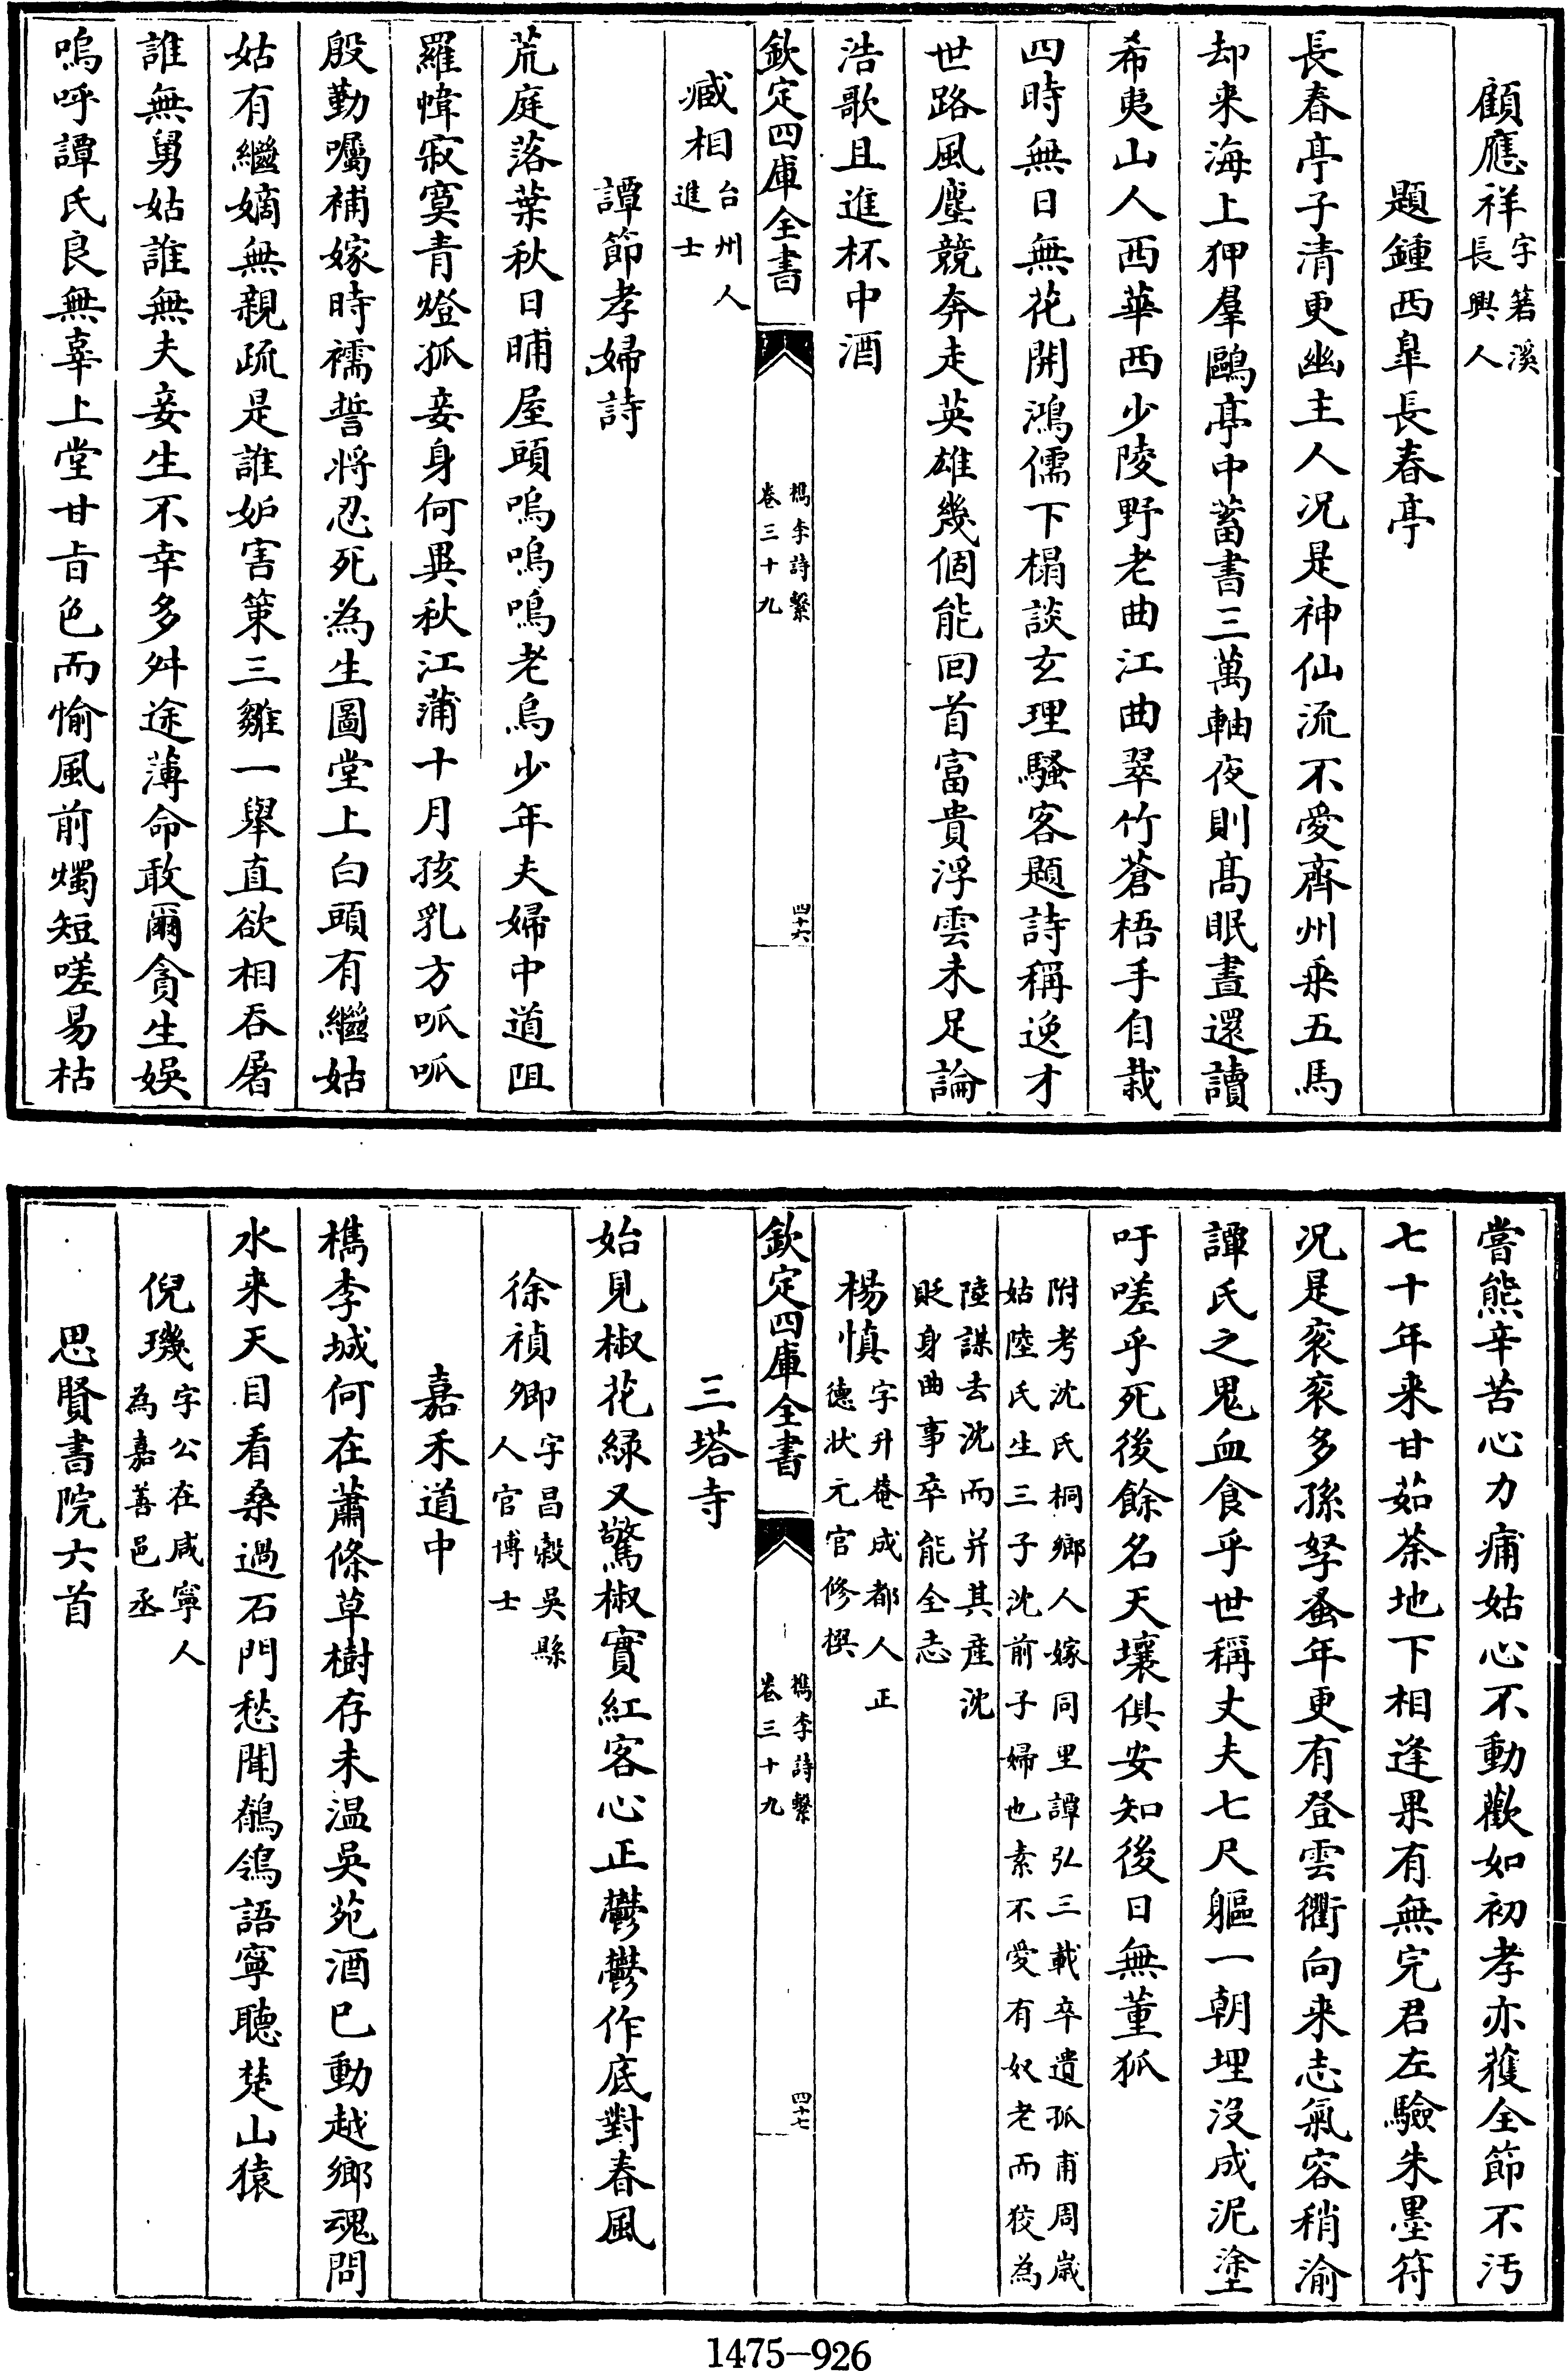 顧應祥字箬溪長興人
題鍾西臯長春亭
長春亭子清更幽主人況是神仙流不愛齊州乗五馬
却来海上狎羣鷗亭中蓄書三萬軸夜則髙眠晝還讀
希夷山人西華西少陵野老曲江曲翠竹蒼梧手自栽
四時無日無花開鴻儒下榻談玄理騷客題詩稱逸才
世路風塵競奔走英雄幾個能回首富貴浮雲未足論
浩歌且進杯中酒
欽定四庫全書
檇李詩繫
卷三十九
四十六
臧相台州人進士
譚節孝婦詩
荒庭落葉秋日晡屋頭嗚嗚鳴老烏少年夫婦中道阻
羅幃寂寞青燈孤妾身何異秋江蒲十月孩乳方呱呱
殷勤囑補嫁時襦誓將忍死為生圖堂上白頭有繼姑
姑有繼嫡無親疏是誰妒害策三雛一舉直欲相吞屠
誰無舅姑誰無夫妾生不幸多舛途薄命敢爾貪生娛
嗚呼譚氏良無辜上堂甘旨色而愉風前燭短嗟易枯
嘗熊辛苦心力痡姑心不動歡如初孝亦獲全節不汚
七十年来甘茹荼地下相逢果有無完君左驗朱墨符
況是衮衮多孫孥蚤年更有登雲衢向来志氣容稍渝
譚氏之鬼血食乎世稱丈夫七尺軀一朝埋沒成泥塗
吁嗟乎死後餘名天壤俱安知後日無董狐
附考沈氏桐鄉人嫁同里譚弘三載卒遺孤甫周嵗
姑陸氏生三子沈前子婦也素不愛有奴老而狡為
陸謀去沈而并其產沈
貶身曲事卒能全志
楊慎字升菴成都人正德狀元官修撰
欽定四庫全書
檇李詩繫
卷三十九
四十七
三塔寺
始見椒花緑又驚椒實紅客心正鬱鬱作底對春風
徐禎卿字昌穀吳縣人官博士
嘉禾道中
檇李城何在蕭條草樹存未温吳苑酒已動越鄉魂問
水来天目看桑過石門愁聞鵂鴒語寧聽楚山猿
倪璣字公在咸寧人為嘉善邑丞
思賢書院六首
1475-926